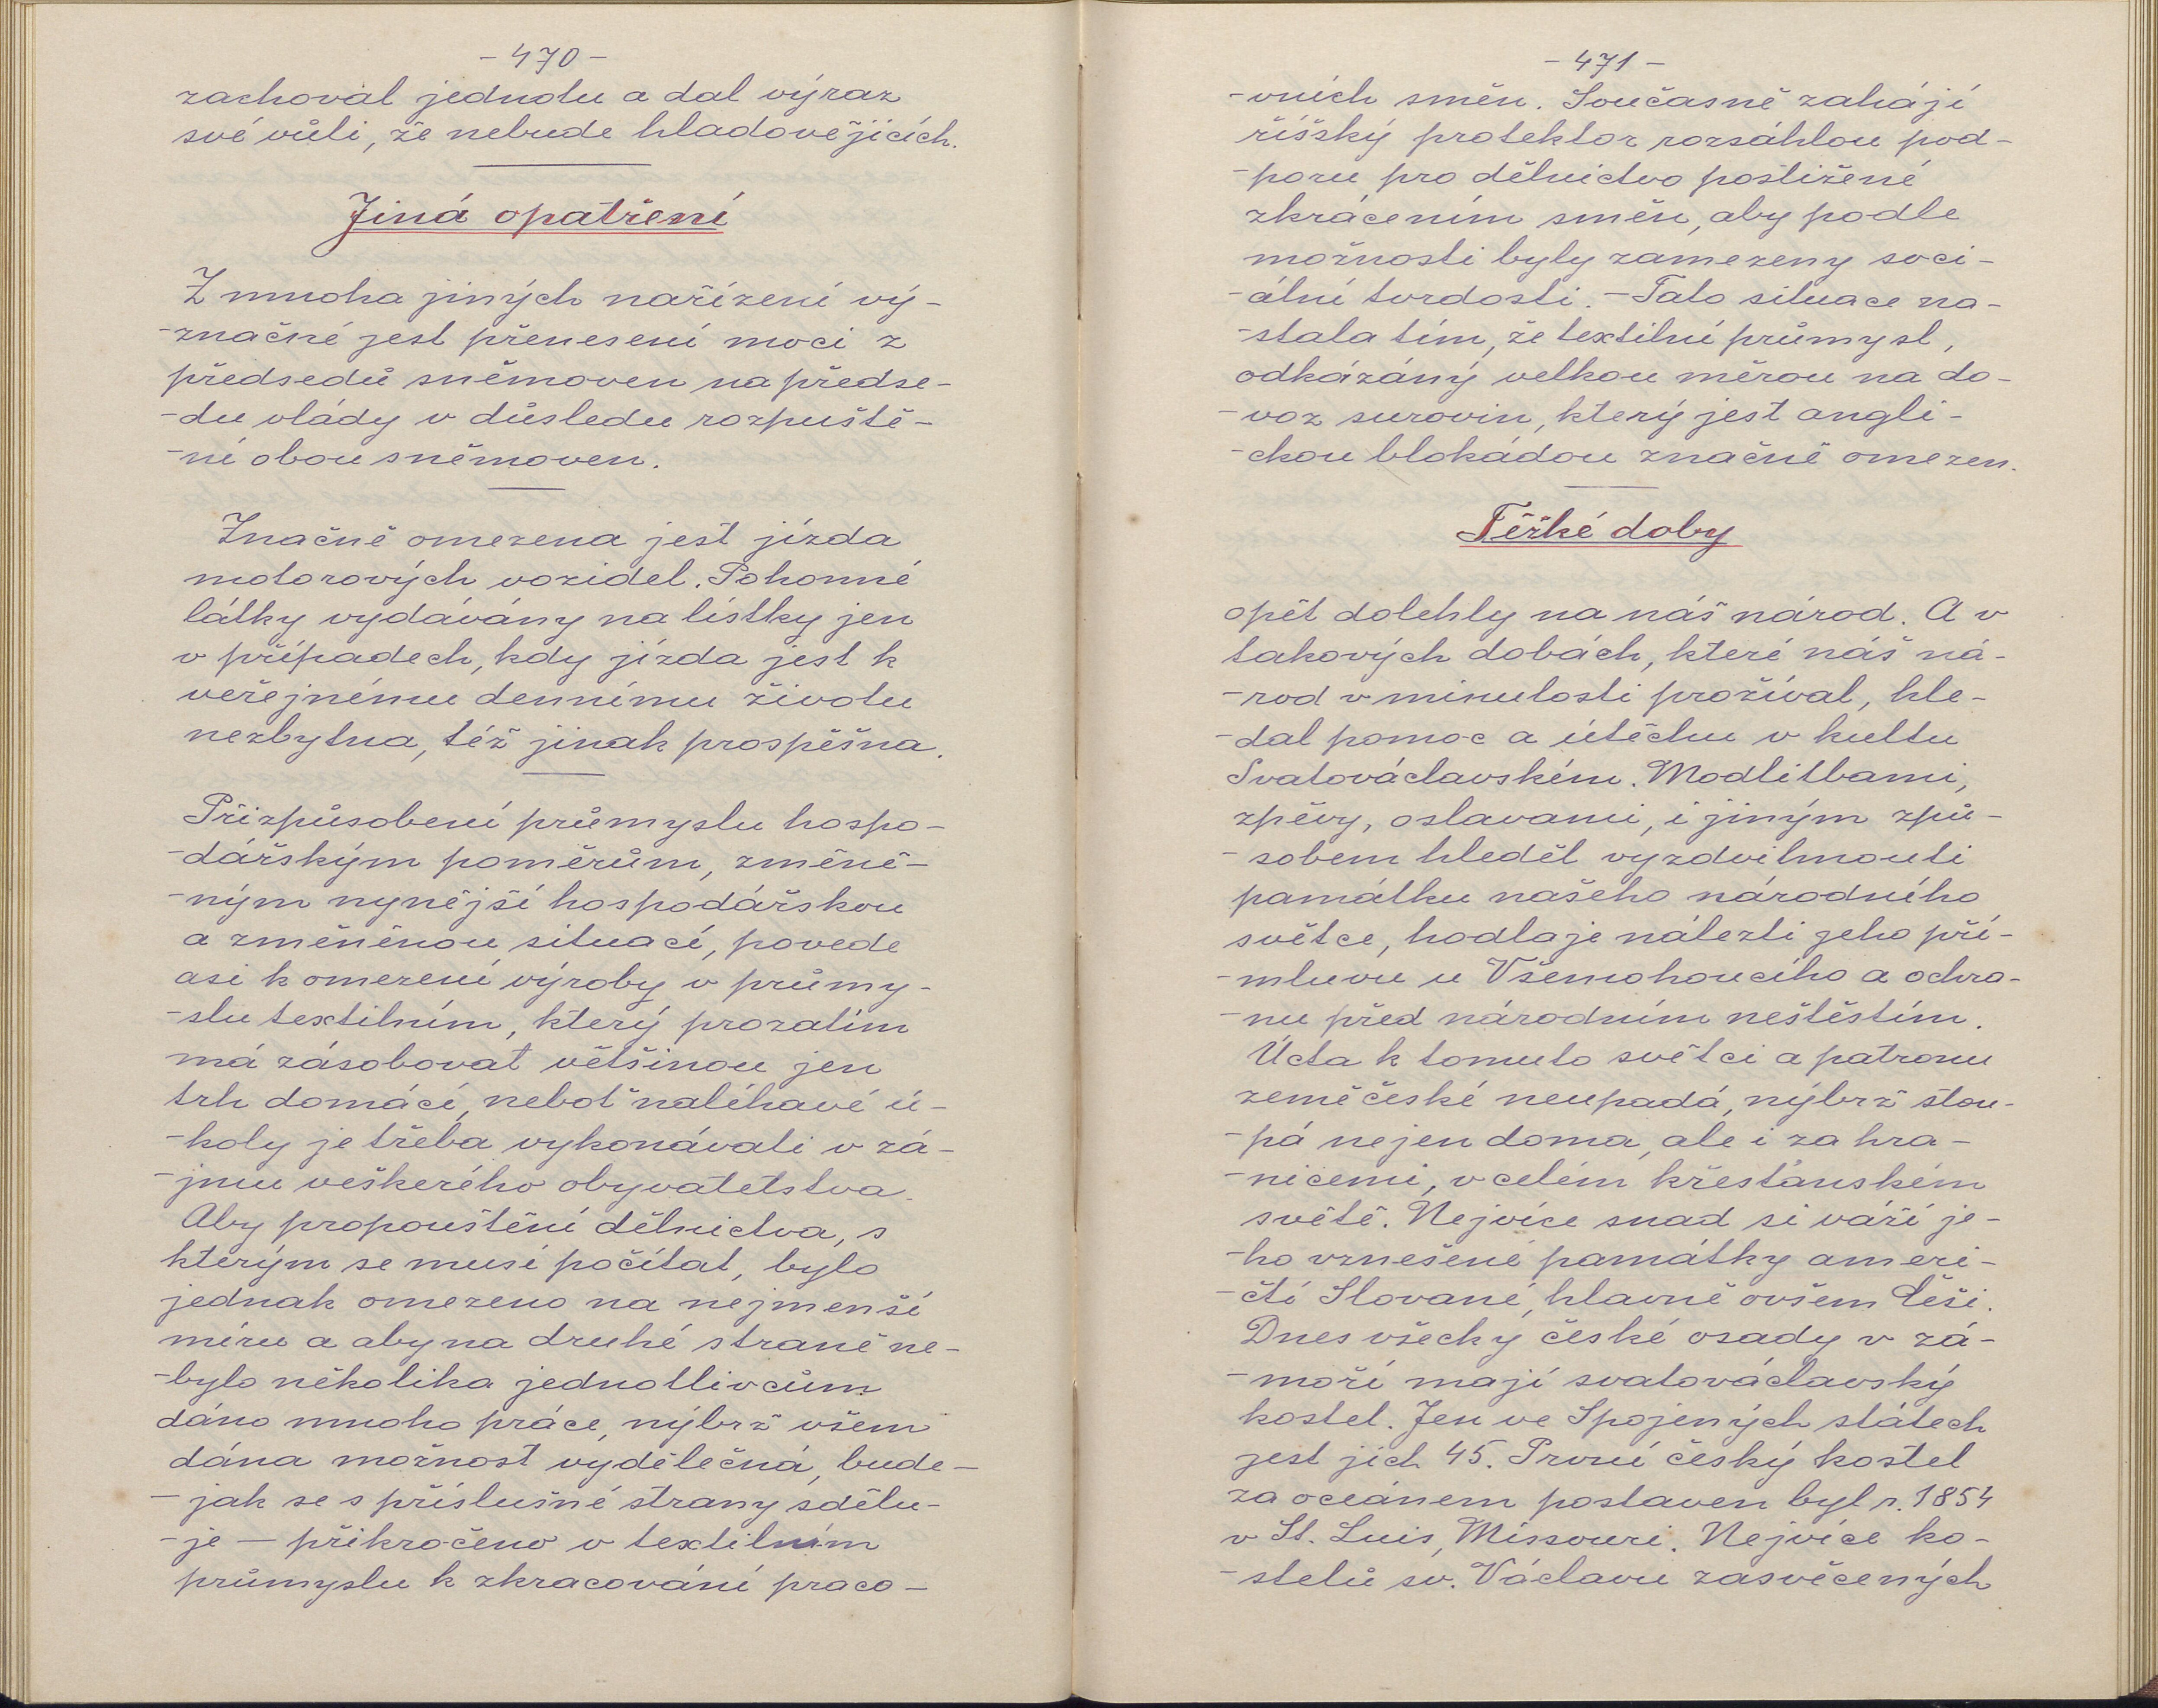 - 470 -
zachoval jednotu a dal výraz
své vůli, že nebude hladovějících.
Jiná opatření
Z mnoha jiných nařízení vý-
-značné jest přenesení moci z
předsedů sněmoven na předse-
-du vlády v důsledu rozpuště-
-ní obou sněmoven.
Značně omezena jest jízda
motorových vozidel. Pohonné
látky vydávány na lístky jen
v případech, kdy jízda jest k
veřejnému dennímu životu
nezbytna, též jinak prospěšna.
Přizpůsobení průmyslu hospo-
-dářským poměrům, změně-
-ným nynější hospodářskou
a změněnou situací, povede
asi k omezení výroby v průmy-
-slu textilním, který prozatím
má zásobovat většinou jen
trh domácí, neboť naléhavé ú-
-koly je třeba vykonávati v zá-
-jmu veškerého obyvatelstva.
Aby propouštění dělnictva, s
kterým se musí počítat, bylo
jednak omezeno na nejmenší
míru a aby na druhé straně ne-
-bylo několika jednotlivcům
dáno mnoho práce, nýbrž všem
dána možnost výdělečná, bude-
- jak se s příslušné strany sdělu-
-je - přikročeno v textilním
průmyslu k zkracování praco-
- 471 -
-vních směn. Současně zahájí
říšský protektor rozsáhlou pod-
-poru pro dělnictvo postižené
zkrácením směn, aby podle
možnosti byly zamezeny soci-
-ální tvrdosti. - Tato situace na-
-stala tím, že textilní průmysl,
odkázáný velkou měrou na do-
-voz surovin, který jest angli-
-ckou blokádou značně omezen.
Těžké doby
opět dolehly na náš národ. A v
takových dobách, které náš ná-
-rod v minulosti prožíval, hle-
-dal pomoc a útěchu v kultu
Svatováclavském. Modlitbami,
zpěvy, oslavami, i jiným způ-
-sobem hleděl vyzdvihnouti
památku našeho národního
světce, hodlaje nálezti jeho pří-
-mluvu u Všemohoucího a ochra-
-nu před národním neštěstím.
Úcta k tomuto světci a patronu
země české neupadá, nýbrž stou-
-pá nejen doma, ale i za hra-
-nicemi, v celém křesťánském
světě. Nejvíce snad si váží je-
-ho vznešené památky ameri-
-čtí Slované, hlavně ovšem Češi.
Dnes všecky české osady v zá-
-moří mají svatováclavský
kostel. Jen ve Spojených státech
jest jich 45. První český kostel
za oceánem postaven byl r. 1854
v St. Luis, Missouri. Nejvíce ko-
-stelů sv. Václavu zasvěcených